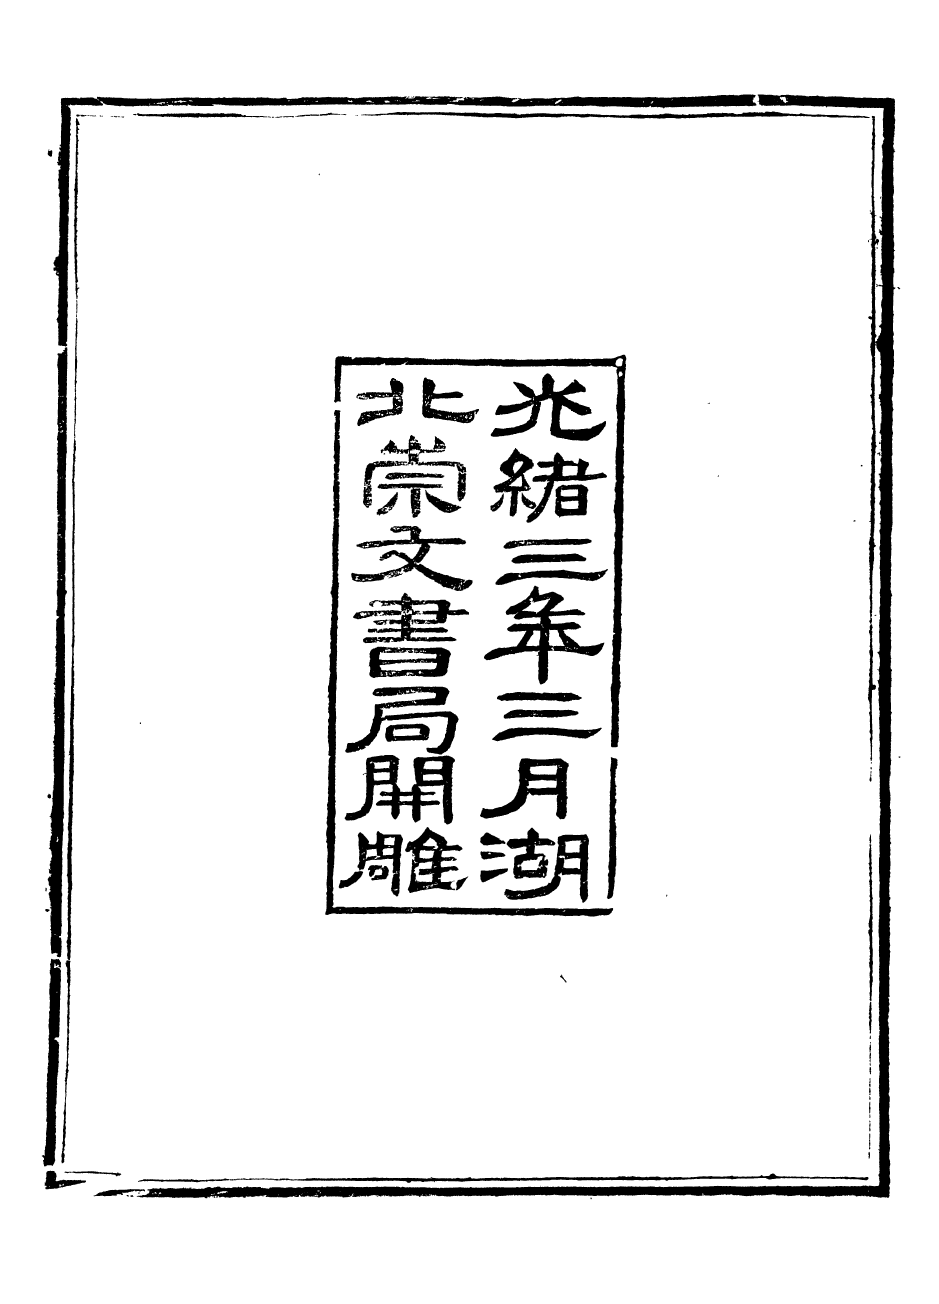 光緒三年三月湖
北崇文書局開雕